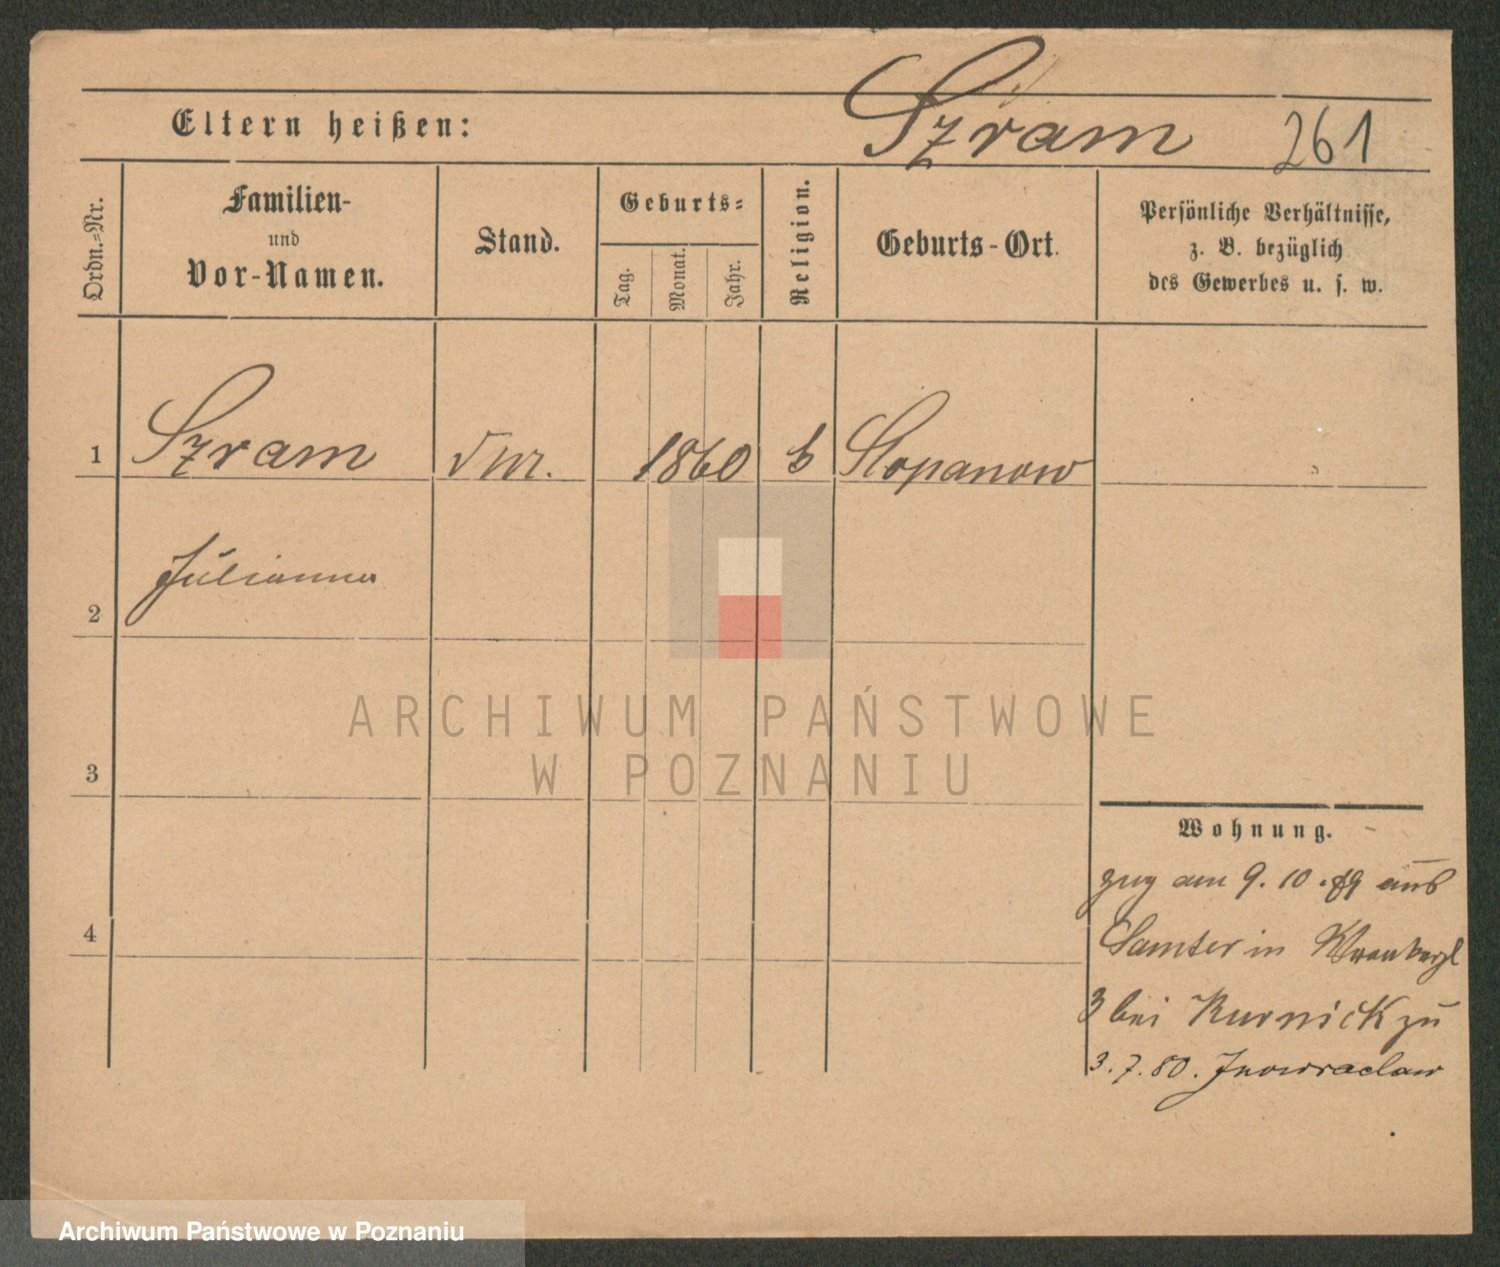 Szram 261
Eltern heißen:
Ordn.-Nr.
Familien-
und
Vor-Namen.
Stand.
Geburts-
Tag.
Monat.
Jahr.
Religion.
Geburts-Ort.
Persönliche Verhältnisse,
z. B. bezüglich
des Gewerbes u. s. w.
1 Szram 1860 Slopanow
Julianna
2
3
4
Wohnung.
zug am 9. 10. 79 aus
Samter in
3 bei Kurnick zu
3. 7. 80. Inowraclaw
ARCHIWUM PAŃSTWOWE
W POZNANIU
Archiwum Państwowe w Poznaniu